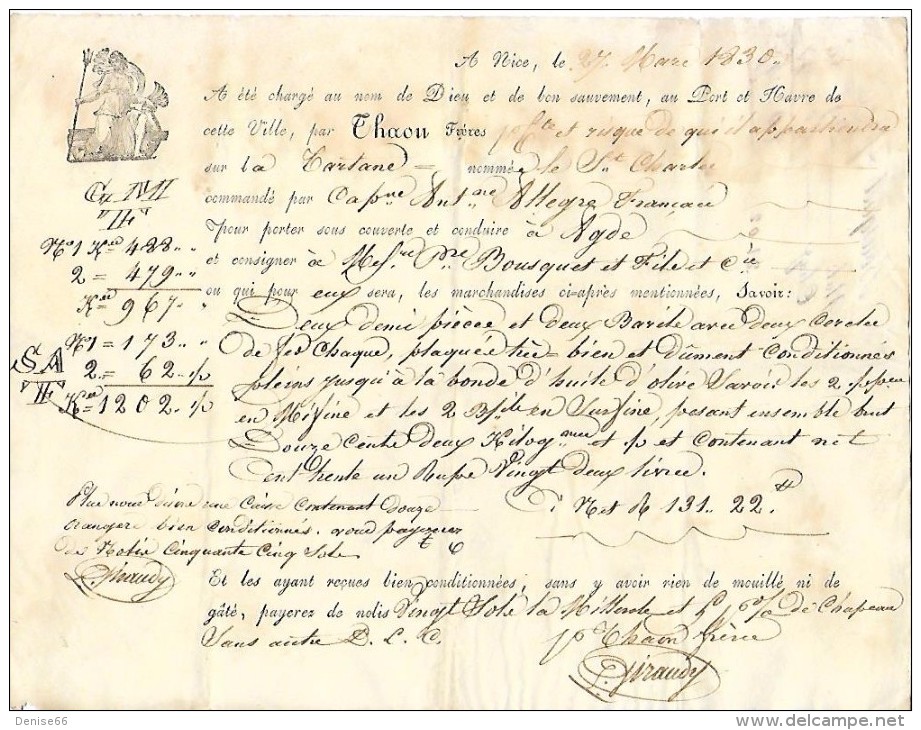 A Nice, le 27 Mars 1830.
A été chargé au nom de Dieu et de bon sauvement, au Port et Havre de
cette Ville, par Thaon Frères p. Cte et risque de qui il appartiendra
sur la Tartane nommée le St. Charles
commandé par Capne Antne Allegre Francais
pour porter sous couverte et conduire à Agde
et consigner à Messrs Pre Bousquet et Fils et Cie
ou qui pour eux sera, les marchandises ci-après mentionnées, Savoir:
Deux demi pièces et deux Barils avec deux Cercles
de fer Chaque, plaquées très bien et dûment Conditionnés
pleins jusqu'à la bonde d'huile d'olive Savoir les 2
en Mifine et les 2 en Surfine, pesant ensemble brut
Douze Cents deux Kilogmes et 1/2 et Contenant net
Cent trente un Rups Vingt deux livres.
Net R 131.. 22
N°1 Kes 488.. "
2 = 479.. "
Kes 967. "
N°1 = 173.. "
2 = 62.. 1/2
Kes = 1202. 1/2
SA
Plus nous une Caisse Contenant douze
bien Conditionnés. vous payerez
de Nolis Cinquante Cinq Sols
Giraudy
Et les ayant reçues bien conditionnées, sans y avoir rien de mouillé ni de
gâté, payerez de nolis Vingt Sols la Millerole et 5 p % de Chapeau
Sans autre D. L. C.
p Thaon frères
Giraudy
Denise66
www.delcampe.net